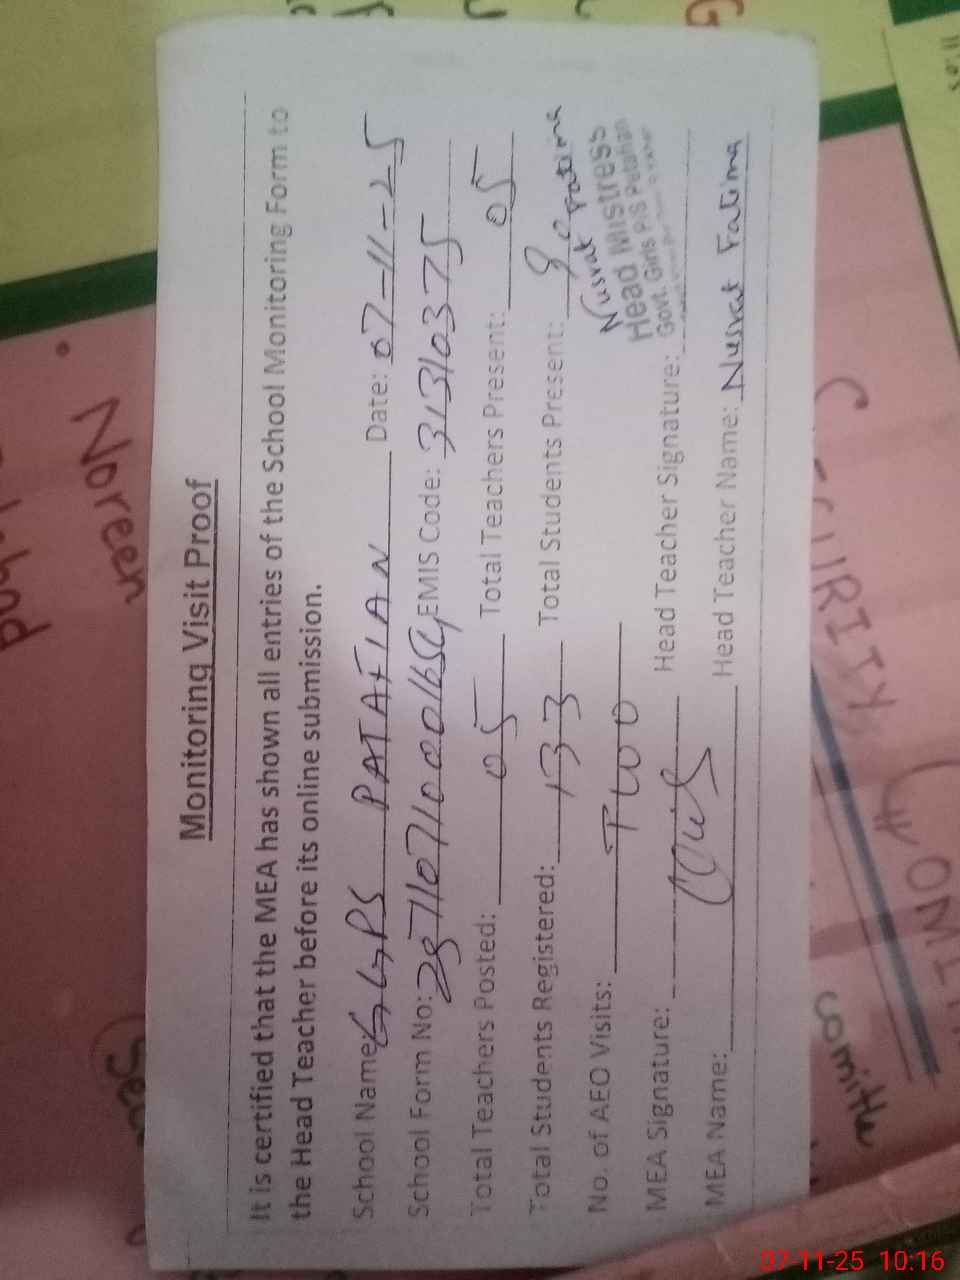 Monitoring Visit Proof
It is certified that the MEA has shown all entries of the School Monitoring Form to
the Head Teacher before its online submission.
School Name: GGPS PATATIAN Date: 07-11-25
School Form No: EMIS Code: 31310375
Total Teachers Posted: 05 Total Teachers Present: 05
Total Students Registered: 133 Total Students Present:
No. of AEO Visits: Two
Nusrat Fatima
Head Mistress
Govt. Girls P/S Patatian
MEA Signature: Head Teacher Signature:
MEA Name: Head Teacher Name: Nusrat Fatima
Noreen
comitte
07-11-25 10:16